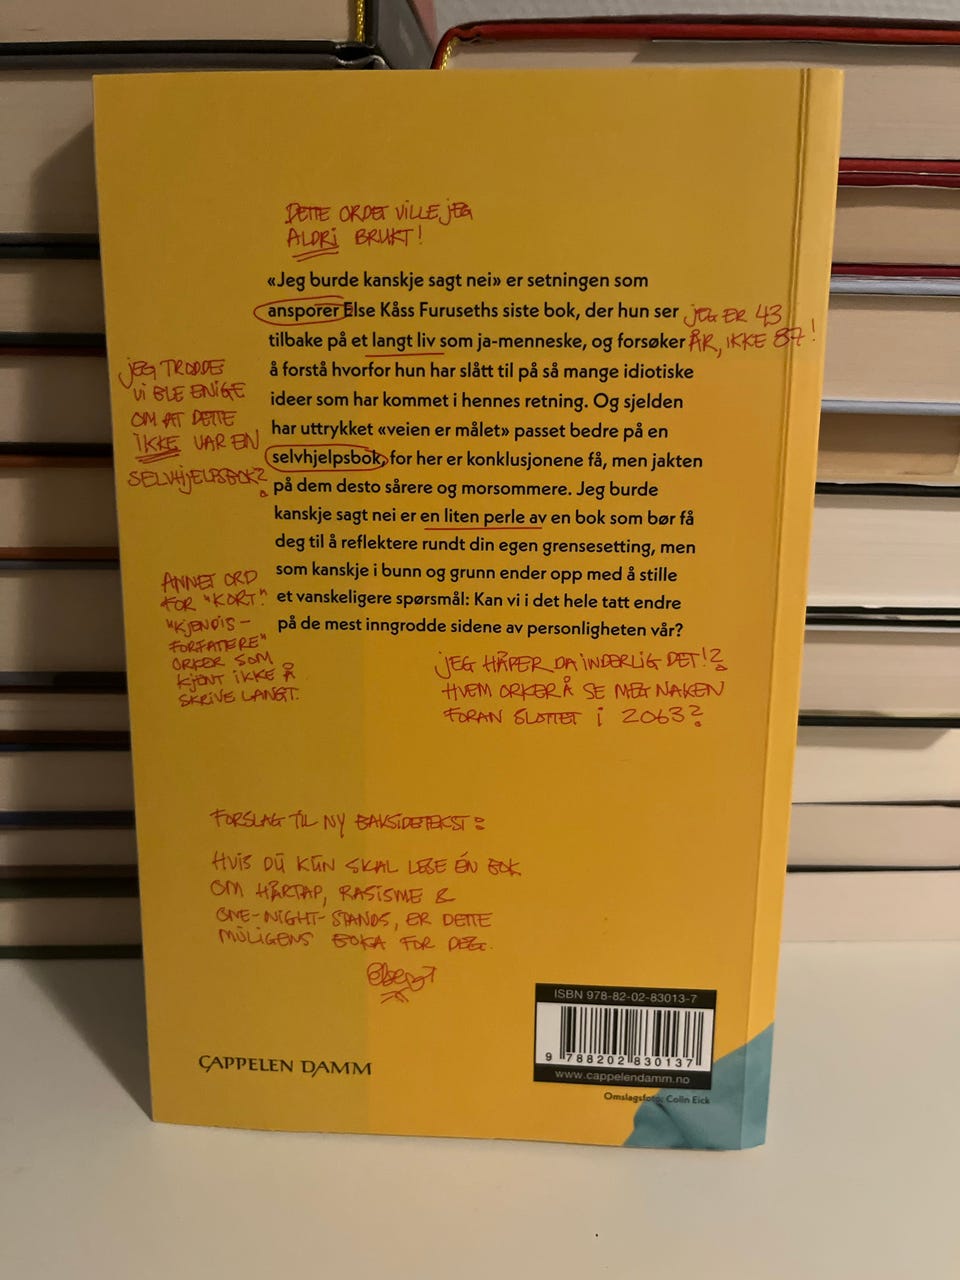 DETTE ORDET VILLE JEG
ALDRI BRUKT!
«Jeg burde kanskje sagt nei» er setningen som
ansporer Else Kåss Furuseths siste bok, der hun ser
tilbake på et langt liv som ja-menneske, og forsøker
å forstå hvorfor hun har slått til på så mange idiotiske
ideer som har kommet i hennes retning. Og sjelden
har uttrykket «veien er målet» passet bedre på en
selvhjelpsbok, for her er konklusjonene få, men jakten
på dem desto sårere og morsommere. Jeg burde
kanskje sagt nei er en liten perle av en bok som bør få
deg til å reflektere rundt din egen grensesetting, men
som kanskje i bunn og grunn ender opp med å stille
et vanskeligere spørsmål: Kan vi i det hele tatt endre
på de mest inngrodde sidene av personligheten vår?
JEG ER 43
ÅR, IKKE 87!
JEG TRODDE
VI BLE ENIGE
OM AT DETTE
IKKE VAR EN
SELVHJELPSBOK?
ANNET ORD
FOR "KORT".
"KJENDIS-
FORFATTERE"
ORKER SOM
KJENT IKKE Å
SKRIVE LANGT.
JEG HÅPER DA INDERLIG DET!?
HVEM ORKER Å SE MEG NAKEN
FORAN SLOTTET I 2063?
FORSLAG TIL NY BAKSIDETEKST:
HVIS DU KUN SKAL LESE ÉN BOK
OM HÅRTAP, RASISME &
ONE-NIGHT-STANDS, ER DETTE
MULIGENS BOKA FOR DEG.
CAPPELEN DAMM
ISBN 978-82-02-83013-7
9 788202 830137
www.cappelendamm.no
Omslagsfoto: Colin Eick